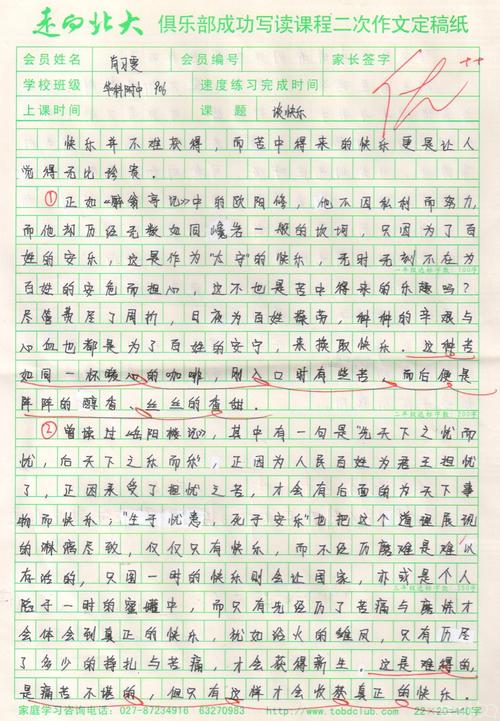 走向北大 俱乐部成功写读课程二次作文定稿纸
会员姓名 肖习雯 会员编号 家长签字
学校班级 华科附中 906 速度练习完成时间
上课时间 课题 谈快乐
优++
快乐并不难获得，而苦中得来的快乐更是让人
觉得无比珍贵。
①正如《醉翁亭记》中的欧阳修，他不因私利而努力
而他却历经无数如同嶙岩一般的坎坷，只因为了百
姓的安乐，这是作为“太守”的快乐，无时无刻不在为
一年级达标字数：100字
百姓的安危而担心，这不也是苦中得来的乐趣吗？
尽管费尽了周折，日夜为百姓操劳，种种的辛艰与
心血也都是为了百姓的安宁，来换取快乐。这种苦
如同一杯暖心的咖啡，刚入口时有些苦，而后便是
阵阵的醇香、丝丝的香甜。
二年级达标字数：200字
②曾读过《岳阳楼记》，其中有一句是“先天下之忧而
忧，后天下之乐而乐”，正因为人民百姓为君王担忧
了，正因承受了担忧之苦，才会有后面的为天下事
物而快乐；“生于忧患，死于安乐”也把这个道理展现
的淋漓尽致，仅仅只有快乐，而不经历磨难是难以
存活的，只图一时的快乐则会让国家，亦或是个人
陷于一时的蜜罐中，而只有先经历了苦痛与磨炼才
会体会到真正的快乐，犹如浴火的雄凤，只有历尽
了多少的挣扎与苦痛，才会获得新生。这是难得的，
是痛苦不堪的，但只有这样才会收获真正的快乐。
家庭学习咨询电话：027-87234916 63270983 http://www.tobdclub.com 22×20=440字